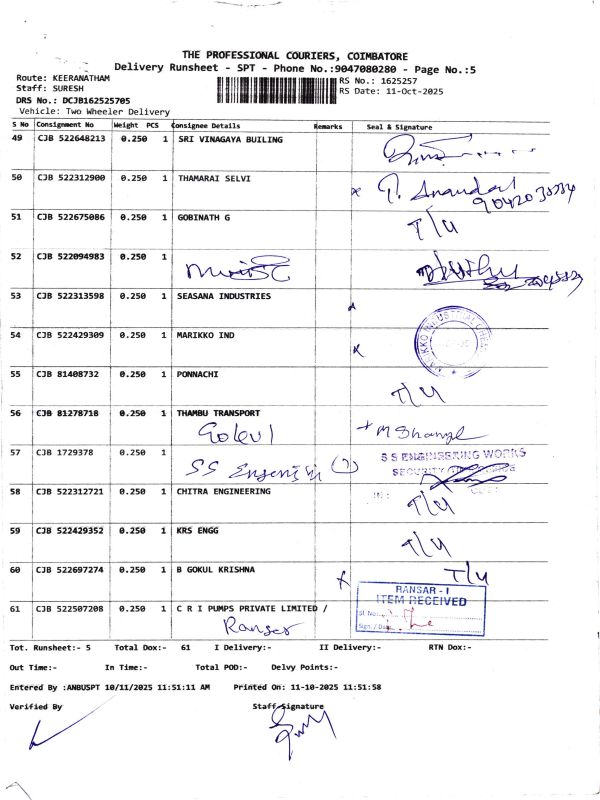 THE PROFESSIONAL COURIERS, COIMBATORE
Delivery Runsheet - SPT - Phone No.:9047080280 - Page No.:5
Route: KEERANATHAM
Staff: SURESH
RS No.: 1625257
DRS No.: DCJB162525705
RS Date: 11-Oct-2025
Vehicle: Two Wheeler Delivery
S No Consignment No Weight PCS Consignee Details Remarks Seal & Signature
49 CJB 522648213 0.250 1 SRI VINAGAYA BUILING
50 CJB 522312900 0.250 1 THAMARAI SELVI
51 CJB 522675086 0.250 1 GOBINATH G T/U
52 CJB 522094983 0.250 1
53 CJB 522313598 0.250 1 SEASANA INDUSTRIES
54 CJB 522429309 0.250 1 MARIKKO IND
55 CJB 81408732 0.250 1 PONNACHI T/U
56 CJB 81278718 0.250 1 THAMBU TRANSPORT
Gokul
57 CJB 1729378 0.250 1 S S ENGINEERING WORKS
SECURITY
58 CJB 522312721 0.250 1 CHITRA ENGINEERING T/U
59 CJB 522429352 0.250 1 KRS ENGG T/U
60 CJB 522697274 0.250 1 B GOKUL KRISHNA T/U
RANSAR - I
ITEM RECEIVED
61 CJB 522507208 0.250 1 C R I PUMPS PRIVATE LIMITED /
Ransar
Tot. Runsheet:- 5 Total Dox:- 61 I Delivery:- II Delivery:- RTN Dox:-
Out Time:- In Time:- Total POD:- Delvy Points:-
Entered By :ANBUSPT 10/11/2025 11:51:11 AM Printed On: 11-10-2025 11:51:58
Verified By Staff Signature